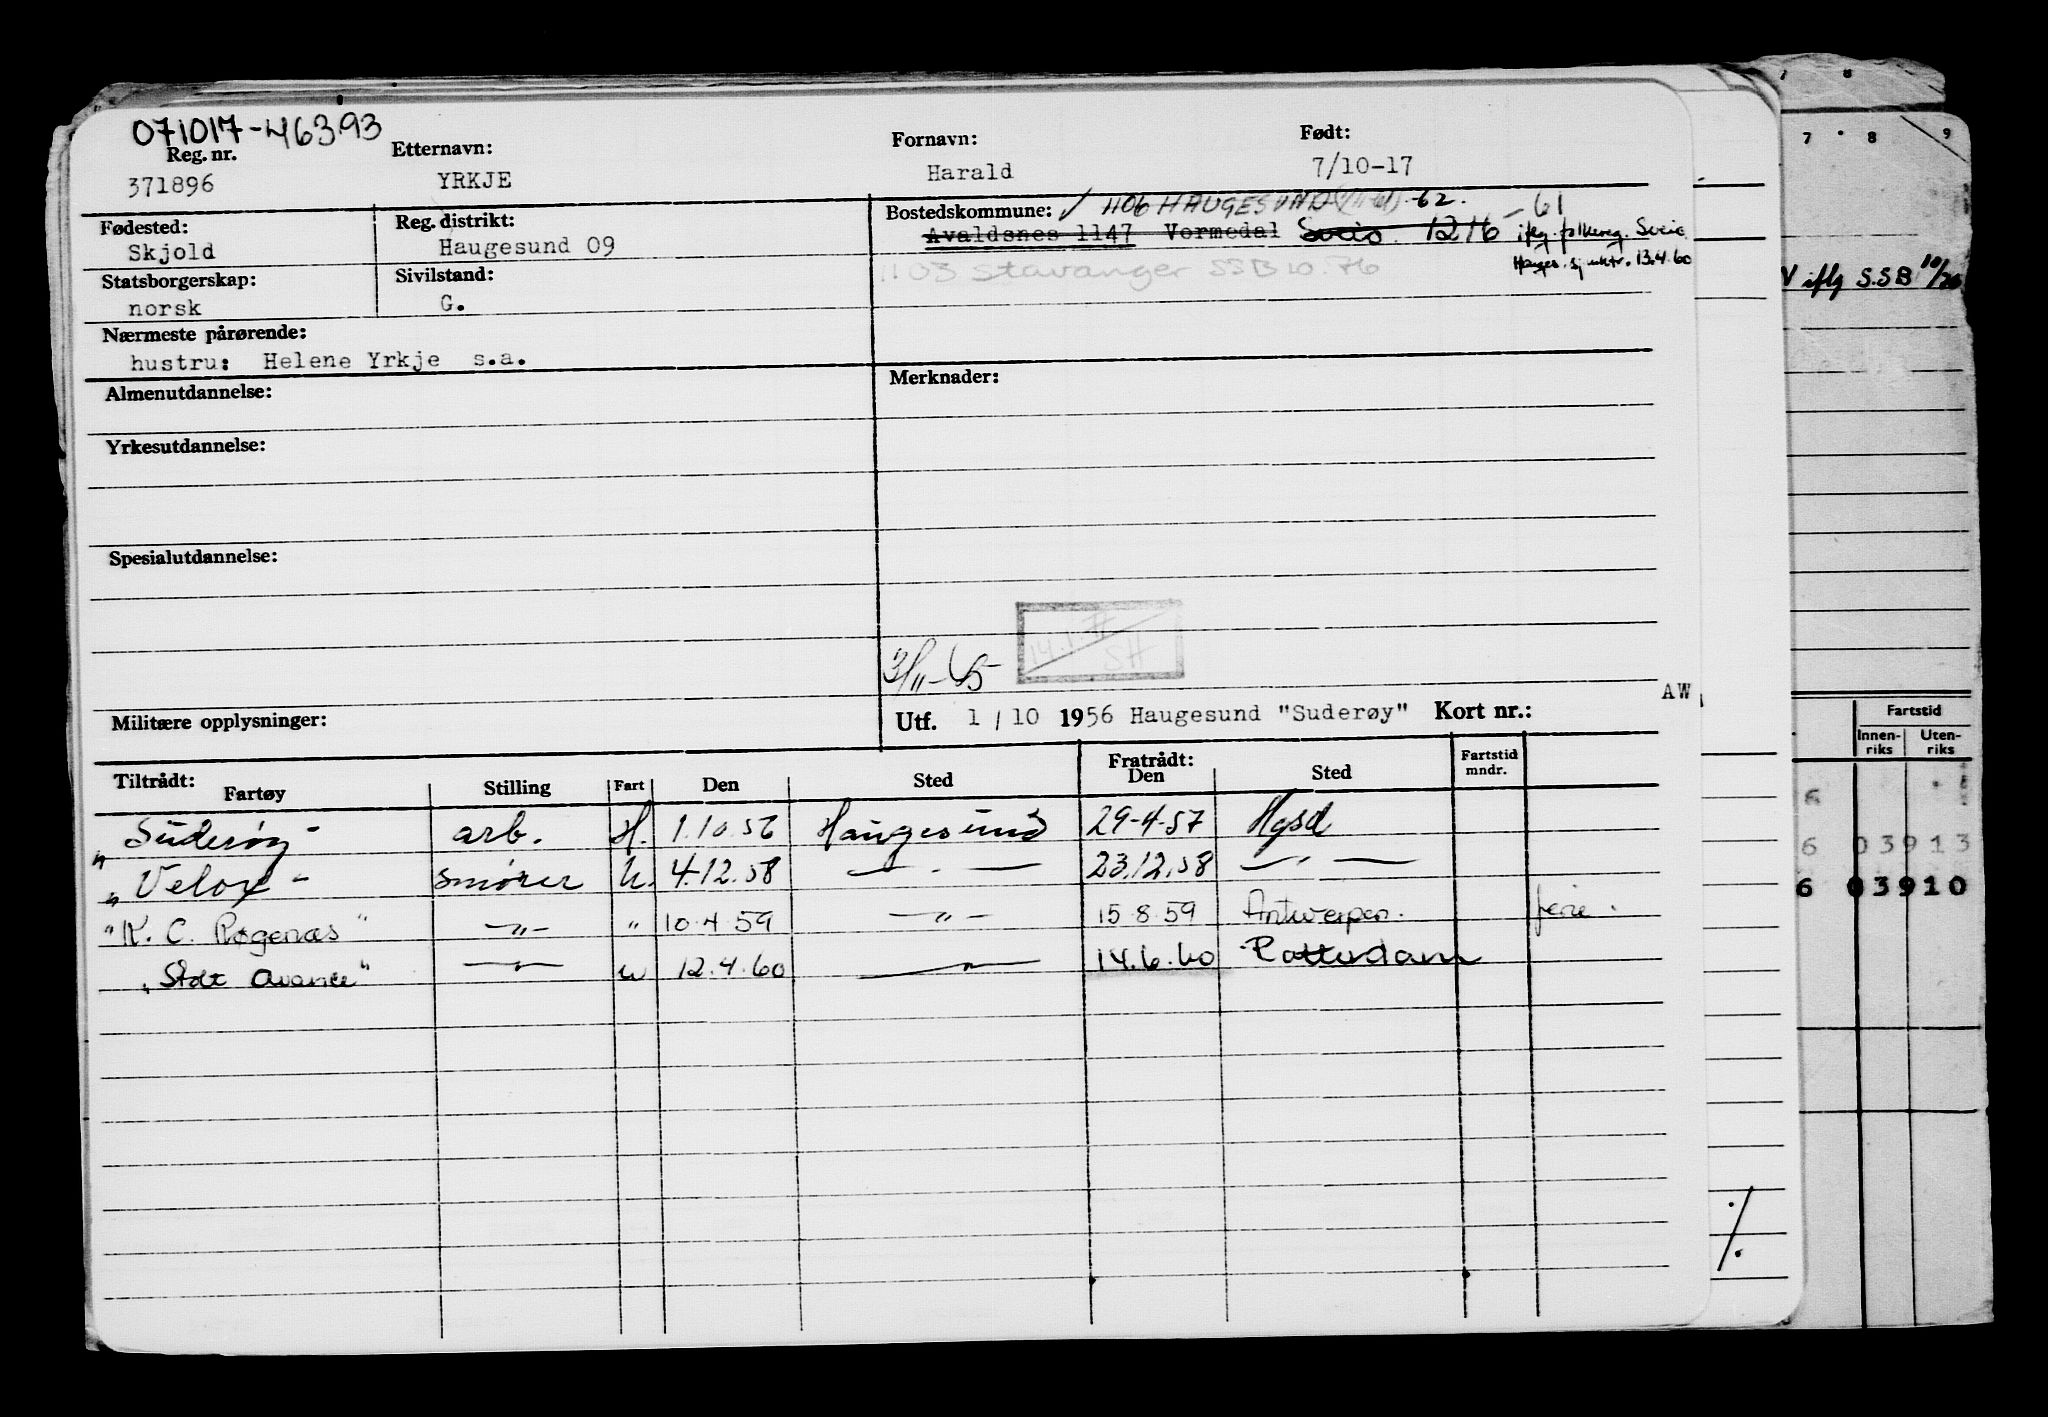 071017-46393
Reg. nr. Etternavn: Fornavn: Født:
371896 YRKJE Harald 7/10-17
Fødested: Reg. distrikt: Bostedskommune: ✓ 1106 HAUGESUND -62.
Skjold Haugesund 09 Avaldsnes 1147 Vormedal Sveio. 1216 -61 iflg. folkereg. Sveio.
Statsborgerskap: Sivilstand: 1103 Stavanger SSB 10.76 13.4.60
norsk G.
Nærmeste pårørende:
hustru: Helene Yrkje s.a.
Almenutdannelse: Merknader:
Yrkesutdannelse:
Spesialutdannelse:
14.1.77
SH
AW
Militære opplysninger: Utf. 1/10 1956 Haugesund "Suderøy" Kort nr.:
Tiltrådt: Fratrådt: Fartstid
Fartøy Stilling Fart Den Sted Den Sted mndr.
"Suderøy" arb. H. 1.10.56 Haugesund 29-4-57 Hgsd
"Velox" smører U. 4.12.58 —"— 23.12.58 —"—
"K. C. Rogenæs" —"— " 10.4.59 —"— 15.8.59 Antwerpen. ferie.
"Stolt Avance" —"— u 12.4.60 —"— 14.6.60 Rotterdam
7 8
7 8 9
iflg S.S.B 10/76
Fartstid
Innen-riks Uten-riks
6
6 03913
6 03910